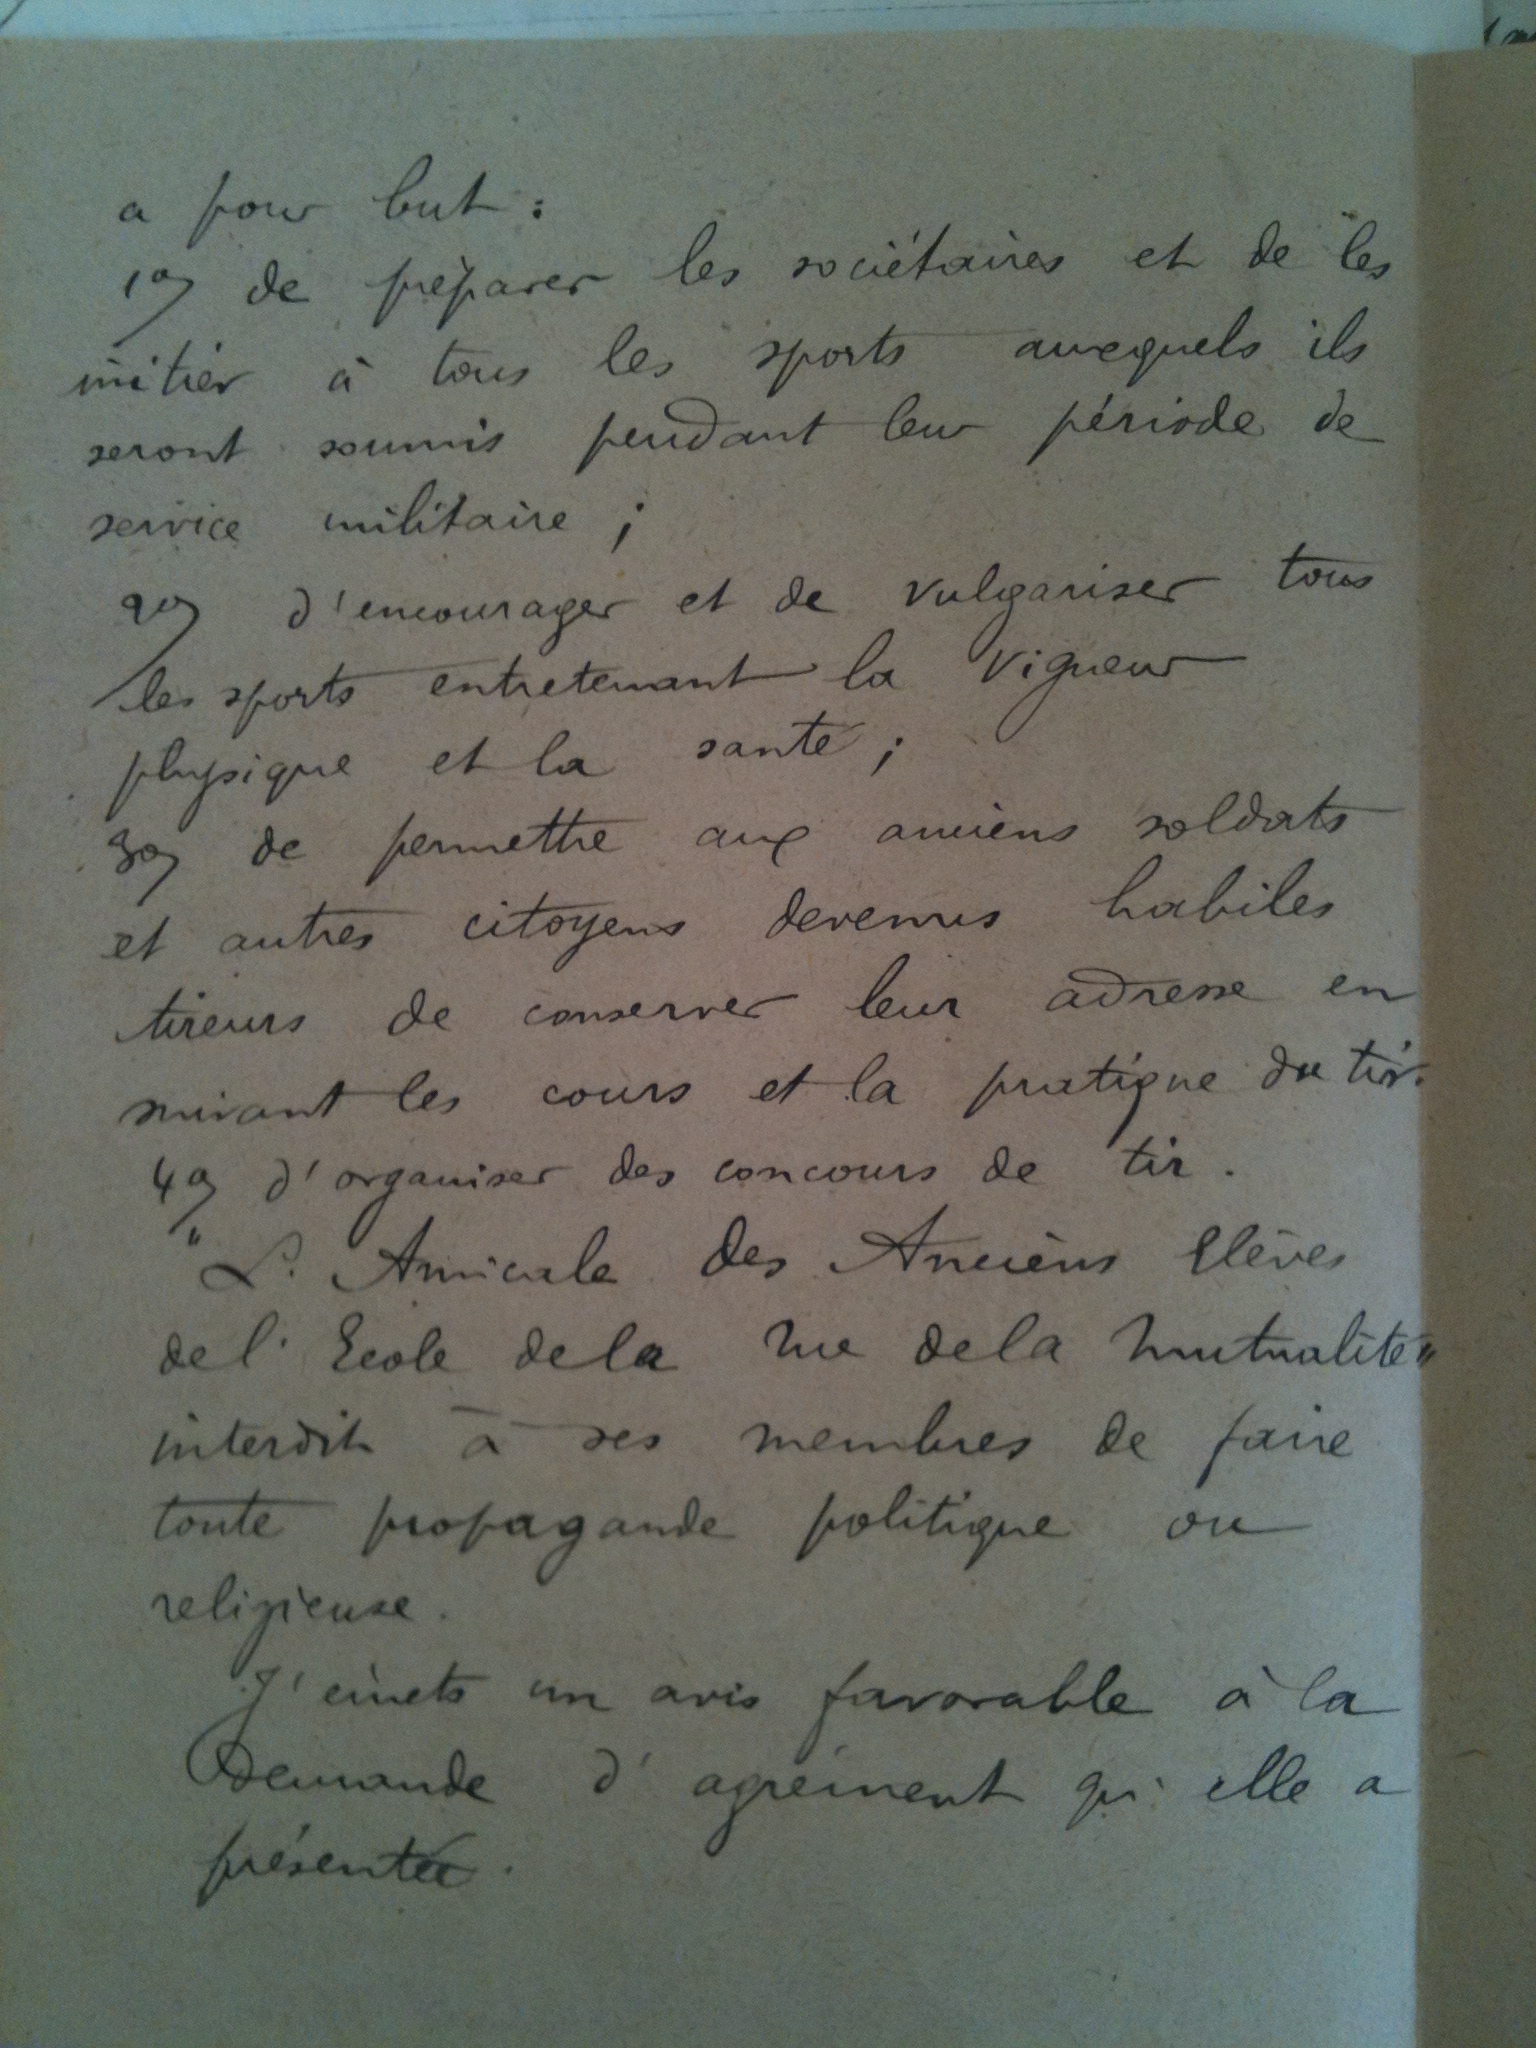 a pour but :
1o) de préparer les sociétaires et de les
initier à tous les sports auxquels ils
seront soumis pendant leur période de
service militaire ;
2o) d'encourager et de vulgariser tous
les sports entretenant la vigueur
physique et la santé ;
3o) de permettre aux anciens soldats
et autres citoyens devenus habiles
tireurs de conserver leur adresse en
suivant les cours et la pratique du tir.
4o) d'organiser des concours de tir.
"L'Amicale des Anciens Elèves
de l'Ecole de la rue de la Mutualité"
interdit à ses membres de faire
toute propagande politique ou
religieuse.
J'émets un avis favorable à la
Demande d'agrément qu'elle a
présentée.